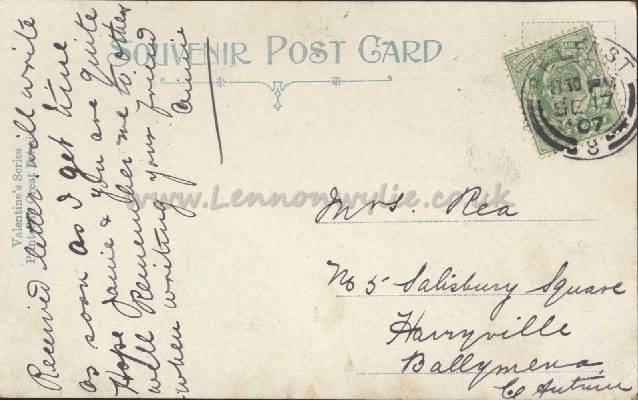 Souvenir Post Card
Valentine's Series
Received letter will write
as soon as I get time
Hope Janie & you are quite
well Remember me to others
when writing your friend
Minnie
BELFAST
8 30 PM
SE 17
07
8
www.Lennonwylie.co.uk
Mrs. Rea
No 5 Salisbury Square
Harryville
Ballymena
Co Antrim